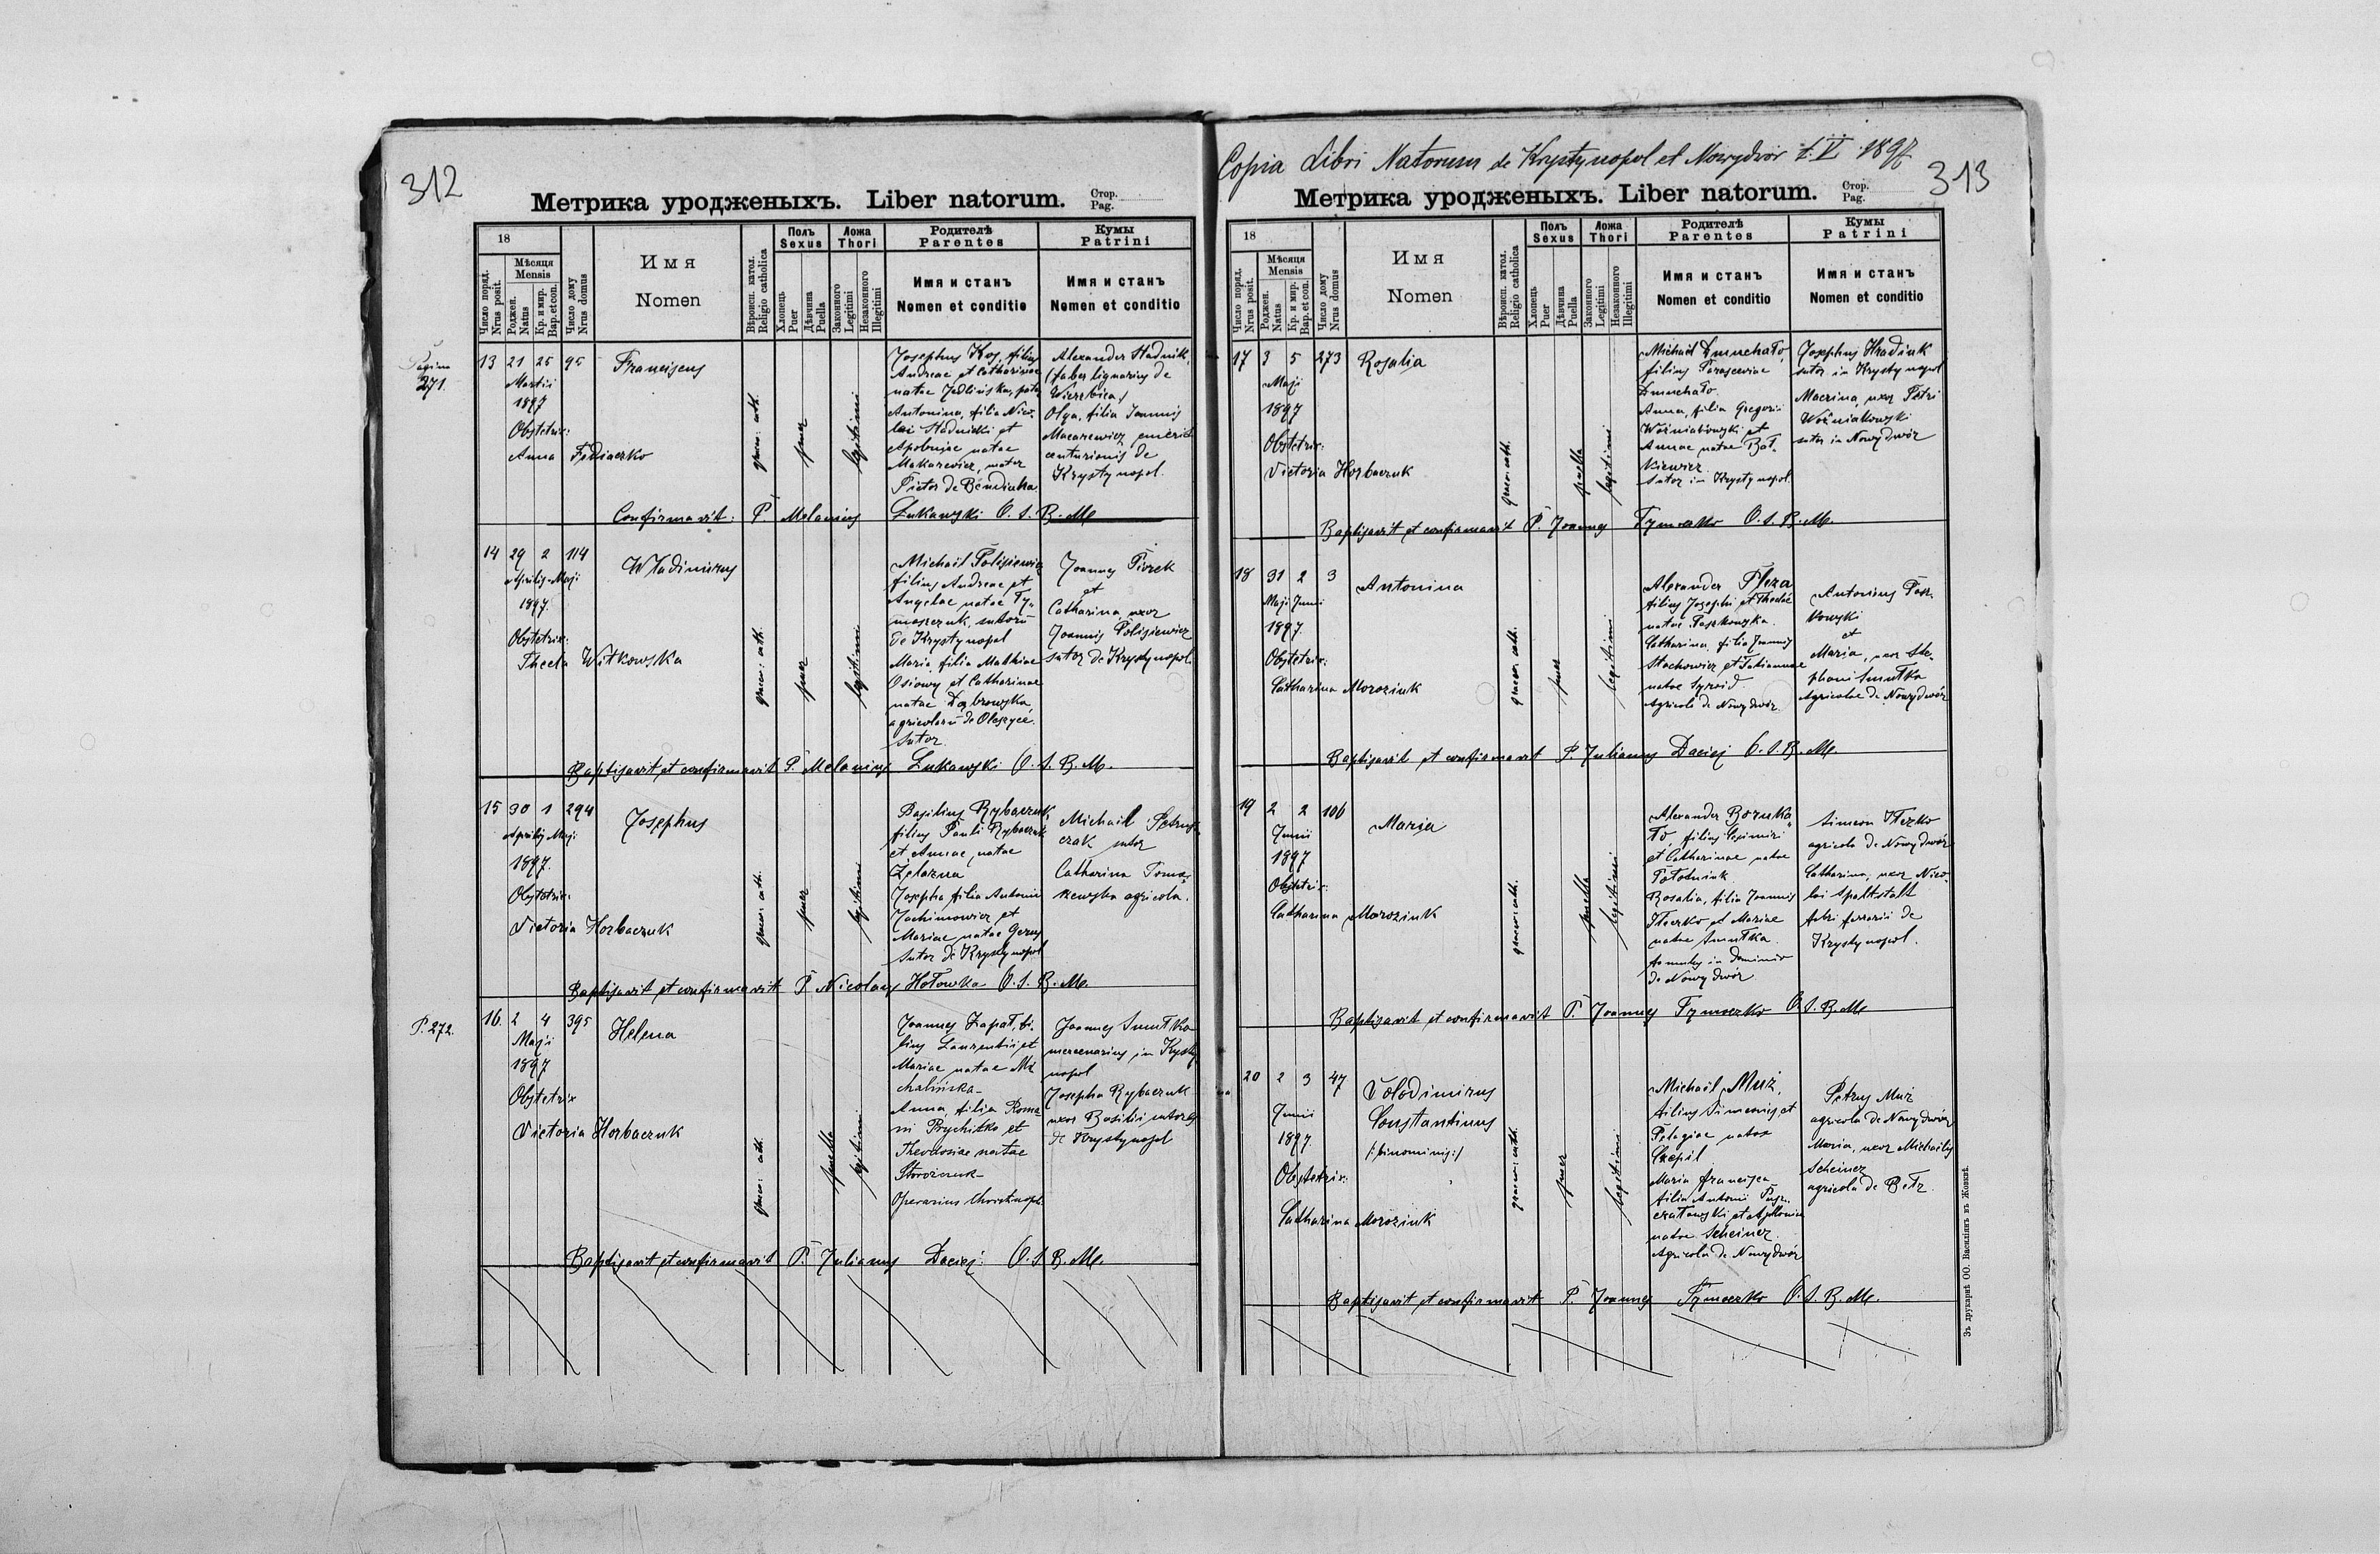 312
Метрика уродженыхъ. Liber natorum.
Стор.
Pag.
18
Число поряд.
Nrus posit.
Мѣсяця
Mensis
Роджен.
Natus
Кр. и мир.
Bap. et con.
Число дому
Nrus domus
Имя
Nomen
Вѣроисп. катол.
Religio catholica
Полъ
Sexus
Хлопець
Puer
Дѣвчина
Puella
Ложа
Thori
Законного
Legitimi
Незаконного
Illegitimi
Родителѣ
Parentes
Имя и станъ
Nomen et conditio
Кумы
Patrini
Имя и станъ
Nomen et conditio
Pagina
271.
13 21 25 95 Franciscus
Martii
1897
Obstetrix:
Anna Fediaczko
graeco: cath.
puer
legitimi
Josephus Kos, filius
Andreae et Catharinae
natae Jedlińska, pater
Antonina, filia Nico-
lai Hadnicki et
Apoloniae natae
Makarewicz, mater
Pictor de Bendiuha
Alexander Hadnik,
(faber lignarius de
Wierzbica)
Olga, filia Joannis
Macarewicz emerit.
centurionis de
Krystynopol.
Confirmavit: P. Melanius Łukawski O. S. B. M.
14 29 2 114 Wladimirus
Aprilis-Maji
1897.
Obstetrix:
Thecla Witkowska
graeco: cath.
puer
legitimi
Michaël Polisiewicz
filius Andreae et
Angelae natae Ty-
moszczuk, sutorū
de Krystynopol
Maria filia Mathiae
Osiowy et Catharinae
natae Dąbrowska,
agricolarū de Oleszyce.
Sutor.
Joannes Piorek
et
Catharina, uxor
Joannis Polisiewicz
sutor de Krystynopol.
Baptisavit et confirmavit P. Melanius Łukawski O. S. B. M.
15 30 1 294 Josephus
Aprilis Maji
1897.
Obstetrix:
Victoria Horbaczuk
graeco: cath.
puer
legitimi
Basilius Rybaczuk,
filius Pauli Rybaczuk
et Annae, natae
Żelazna
Josepha filia Antonii
Jachimowicz et
Mariae natae Gerus
Sutor de Krystynopol
Michaël Petrusz-
czak sutor
Catharina Toma-
szewska agricola.
Baptisavit et confirmavit P. Nicolaus Hołowka O. S. B. M.
P. 272.
16. 2 4 395 Helena
Maji
1897
Obstetrix
Victoria Horbaczuk
graeco: cath.
puella
legitimi
Joannes Łapat, fi-
lius Laurentii et
Mariae natae Mi-
chalińska-
Anna, filia Roma-
ni Prychitko et
Theodosiae natae
Storożczuk-
Operarius Christinopol.
Joannes Smutka
mercenarius in Krysty-
nopol
Josepha Rybaczuk
uxor Basilii sutoris
de Krystynopol
Baptisavit et confirmavit P. Julianus Daciej O. S. B. M.
Copia Libri Natorum de Krystynopol et Nowydwór t. V 1897
313
Метрика уродженыхъ. Liber natorum.
Стор.
Pag.
18
Число поряд.
Nrus posit.
Мѣсяця
Mensis
Роджен.
Natus
Кр. и мир.
Bap. et con.
Число дому
Nrus domus
Имя
Nomen
Вѣроисп. катол.
Religio catholica
Полъ
Sexus
Хлопець
Puer
Дѣвчина
Puella
Ложа
Thori
Законного
Legitimi
Незаконного
Illegitimi
Родителѣ
Parentes
Имя и станъ
Nomen et conditio
Кумы
Patrini
Имя и станъ
Nomen et conditio
17 3 5 273 Rosalia
Maji
1897
Obstetrix:
Victoria Horbaczuk
graeco: cath.
puella
legitimi
Michaël Dmuchało,
filius Parasceviae
Dmuchało.
Anna, filia Gregorii
Woźniakowski et
Annae natae Bał-
kiewicz
Sutor in Krystynopol.
Josephus Hradiuk
sutor in Krystynopol
Macrina, uxor Petri
Woźniakowski
sutor in Nowydwór
Baptisavit et confirmavit P. Joannes Tymoczko O. S. B. M.
18 31 2 3 Antonina
Maji Junii
1897.
Obstetrix:
Catharina Moroziuk
graeco: cath.
puer
legitimi
Alexander Pleza
filius Josephi et Theclae
natae Paszkowska.
Catharina, filia Joannis
Stachowicz et Tatiannae
natae Syroid.
Agricola de Nowydwór.
Antonius Pasz-
kowski
et
Maria, uxor Ste-
phani Smutka
Agricolae de Nowydwór
Baptisavit et confirmavit P. Julianus Daciej O. S. B. M.
19 2 2 106 Maria
Junii
1897
Obstetrix:
Catharina Moroziuk
graeco: cath.
puella
legitimi
Alexander Boruka-
ło, filius Casimiri
et Catharinae natae
Połotniuk
Rosalia, filia Joannis
Tteczko et Mariae
natae Smutka.
famulus in dominio
de Nowydwór
Simeon Tteczko
agricola de Nowydwór
Catharina, uxor Nico-
lai Spaltstall
fabri ferrarii de
Krystynopol.
Baptisavit et confirmavit P. Joannes Tymoczko O. S. B. M.
20 2 3 47 Volodimirus
Junii Constantinus
1897. /:binominis:/
Obstetrix:
Catharina Moroziuk
graeco: cath.
puer
legitimi
Michaël Muż,
filius Simeonis et
Pelagiae natae
Czepil
Maria Francisca
filia Antonii Pusz-
czałowski et Apolloniae
natae Scheiner
Agricola de Nowydwór
Petrus Muż
agricola de Nowydwór
Maria, uxor Michaëlis
Scheiner
agricola de Bełz.
Baptisavit et confirmavit P. Joannes Tymoczko O. S. B. M.
Зъ друкарнѣ ОО. Василіянъ въ Жовквѣ.